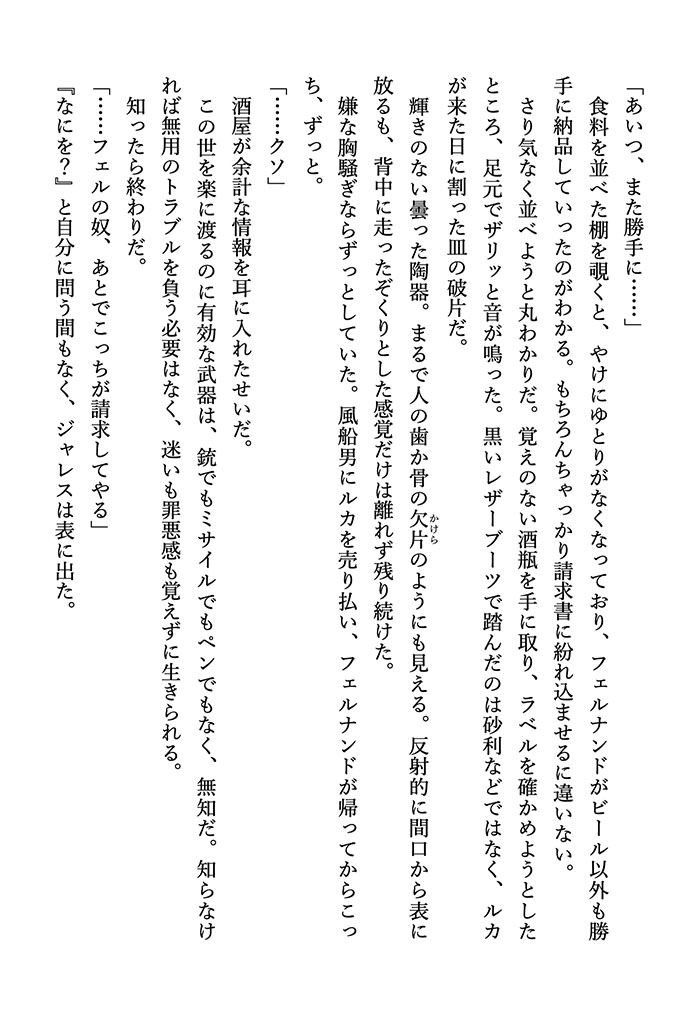 「あいつ、また勝手に……」
　食料を並べた棚を覗くと、やけにゆとりがなくなっており、フェルナンドがビール以外も勝
手に納品していったのがわかる。もちろんちゃっかり請求書に紛れ込ませるに違いない。
　さり気なく並べようと丸わかりだ。覚えのない酒瓶を手に取り、ラベルを確かめようとした
ところ、足元でザリッと音が鳴った。黒いレザーブーツで踏んだのは砂利などではなく、ルカ
が来た日に割った皿の破片だ。
　輝きのない曇った陶器。まるで人の歯か骨の欠片かけらのようにも見える。反射的に間口から表に
放るも、背中に走ったぞくりとした感覚だけは離れず残り続けた。
　嫌な胸騒ぎならずっとしていた。風船男にルカを売り払い、フェルナンドが帰ってからこっ
ち、ずっと。
「……クソ」
　酒屋が余計な情報を耳に入れたせいだ。
　この世を楽に渡るのに有効な武器は、銃でもミサイルでもペンでもなく、無知だ。知らなけ
れば無用のトラブルを負う必要はなく、迷いも罪悪感も覚えずに生きられる。
　知ったら終わりだ。
「……フェルの奴、あとでこっちが請求してやる」
『なにを？』と自分に問う間もなく、ジャレスは表に出た。